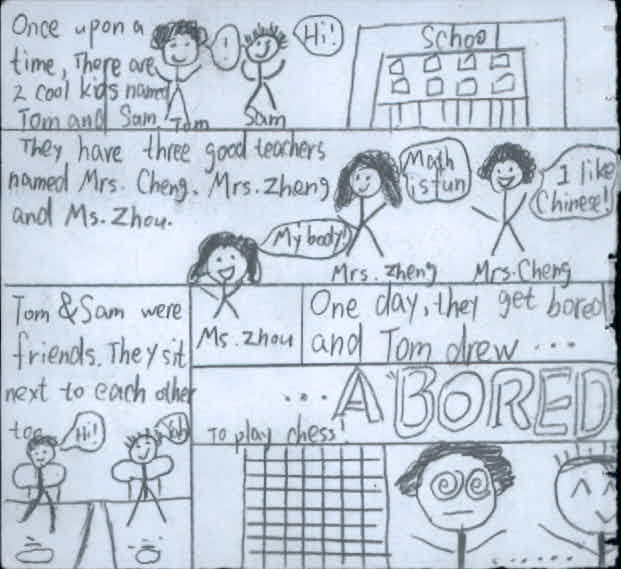 Once upon a
time, There are
2 cool kids named
Tom and Sam.
Tom
!
Sam
Hi!
School
They have three good teachers
named Mrs. Cheng. Mrs. Zheng
and Ms. Zhou.
My body!
Math
is fun
I like
Chinese!
Ms. Zhou
Mrs. Zheng
Mrs. Cheng
Tom & Sam were
friends. They sit
next to each other
too
Hi!
One day, they get bored
and Tom drew ...
... A "BORED
To play chess!